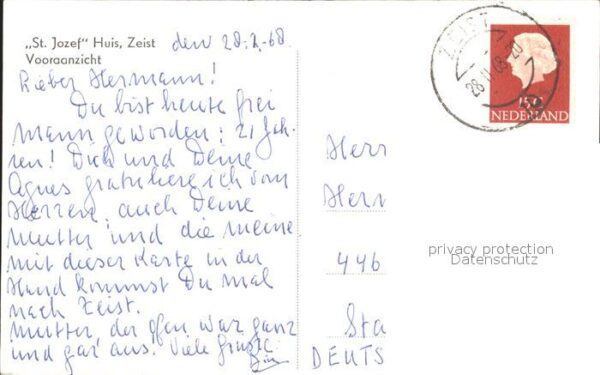 „St. Jozef" Huis, Zeist
Vooraanzicht
den 28.2.68
Lieber Hermann!
Du bist heute frei
Mann geworden: 21 Jah-
ren! Dich und Deine
Agnes gratuliere ich von
Herzen, auch Deine
Mutter und die meine
mit dieser Karte in der
Hand kommst Du mal
nach Zeist.
Mutter, der Ofen war ganz
und gar aus. Viele Grüsse
ZEIST
28 II 68
15c
NEDERLAND
Herr
Herm
446
Sta
DEUTS
privacy protection
Datenschutz